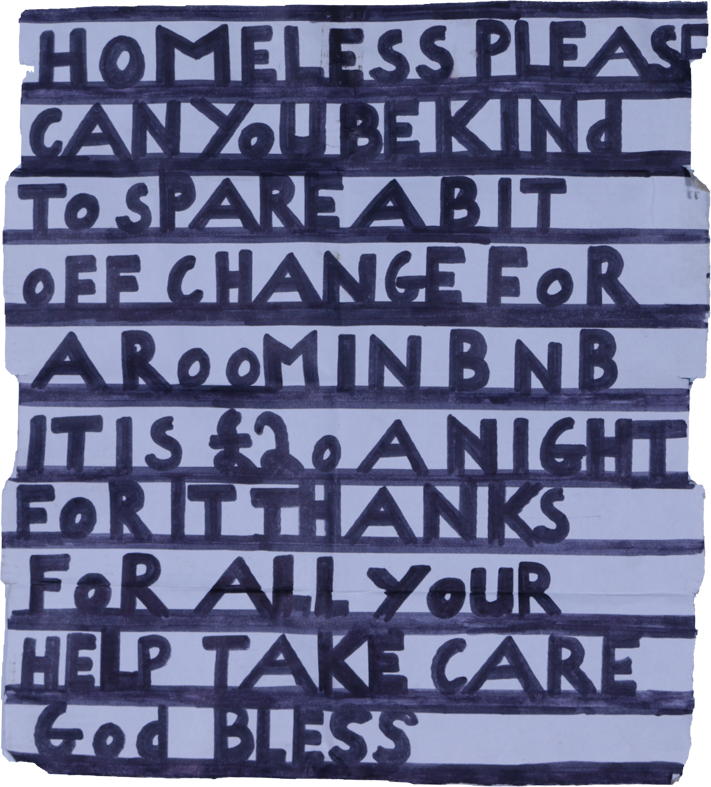 HOMELESS PLEASE
CAN YoU BE KINd
To SPARE A BIT
oFF CHANGE FoR
A RooM IN B N B
IT IS £20 A NIGHT
FoR IT THANKS
FoR ALL YoUR
HELP TAKE CARE
God BLESS